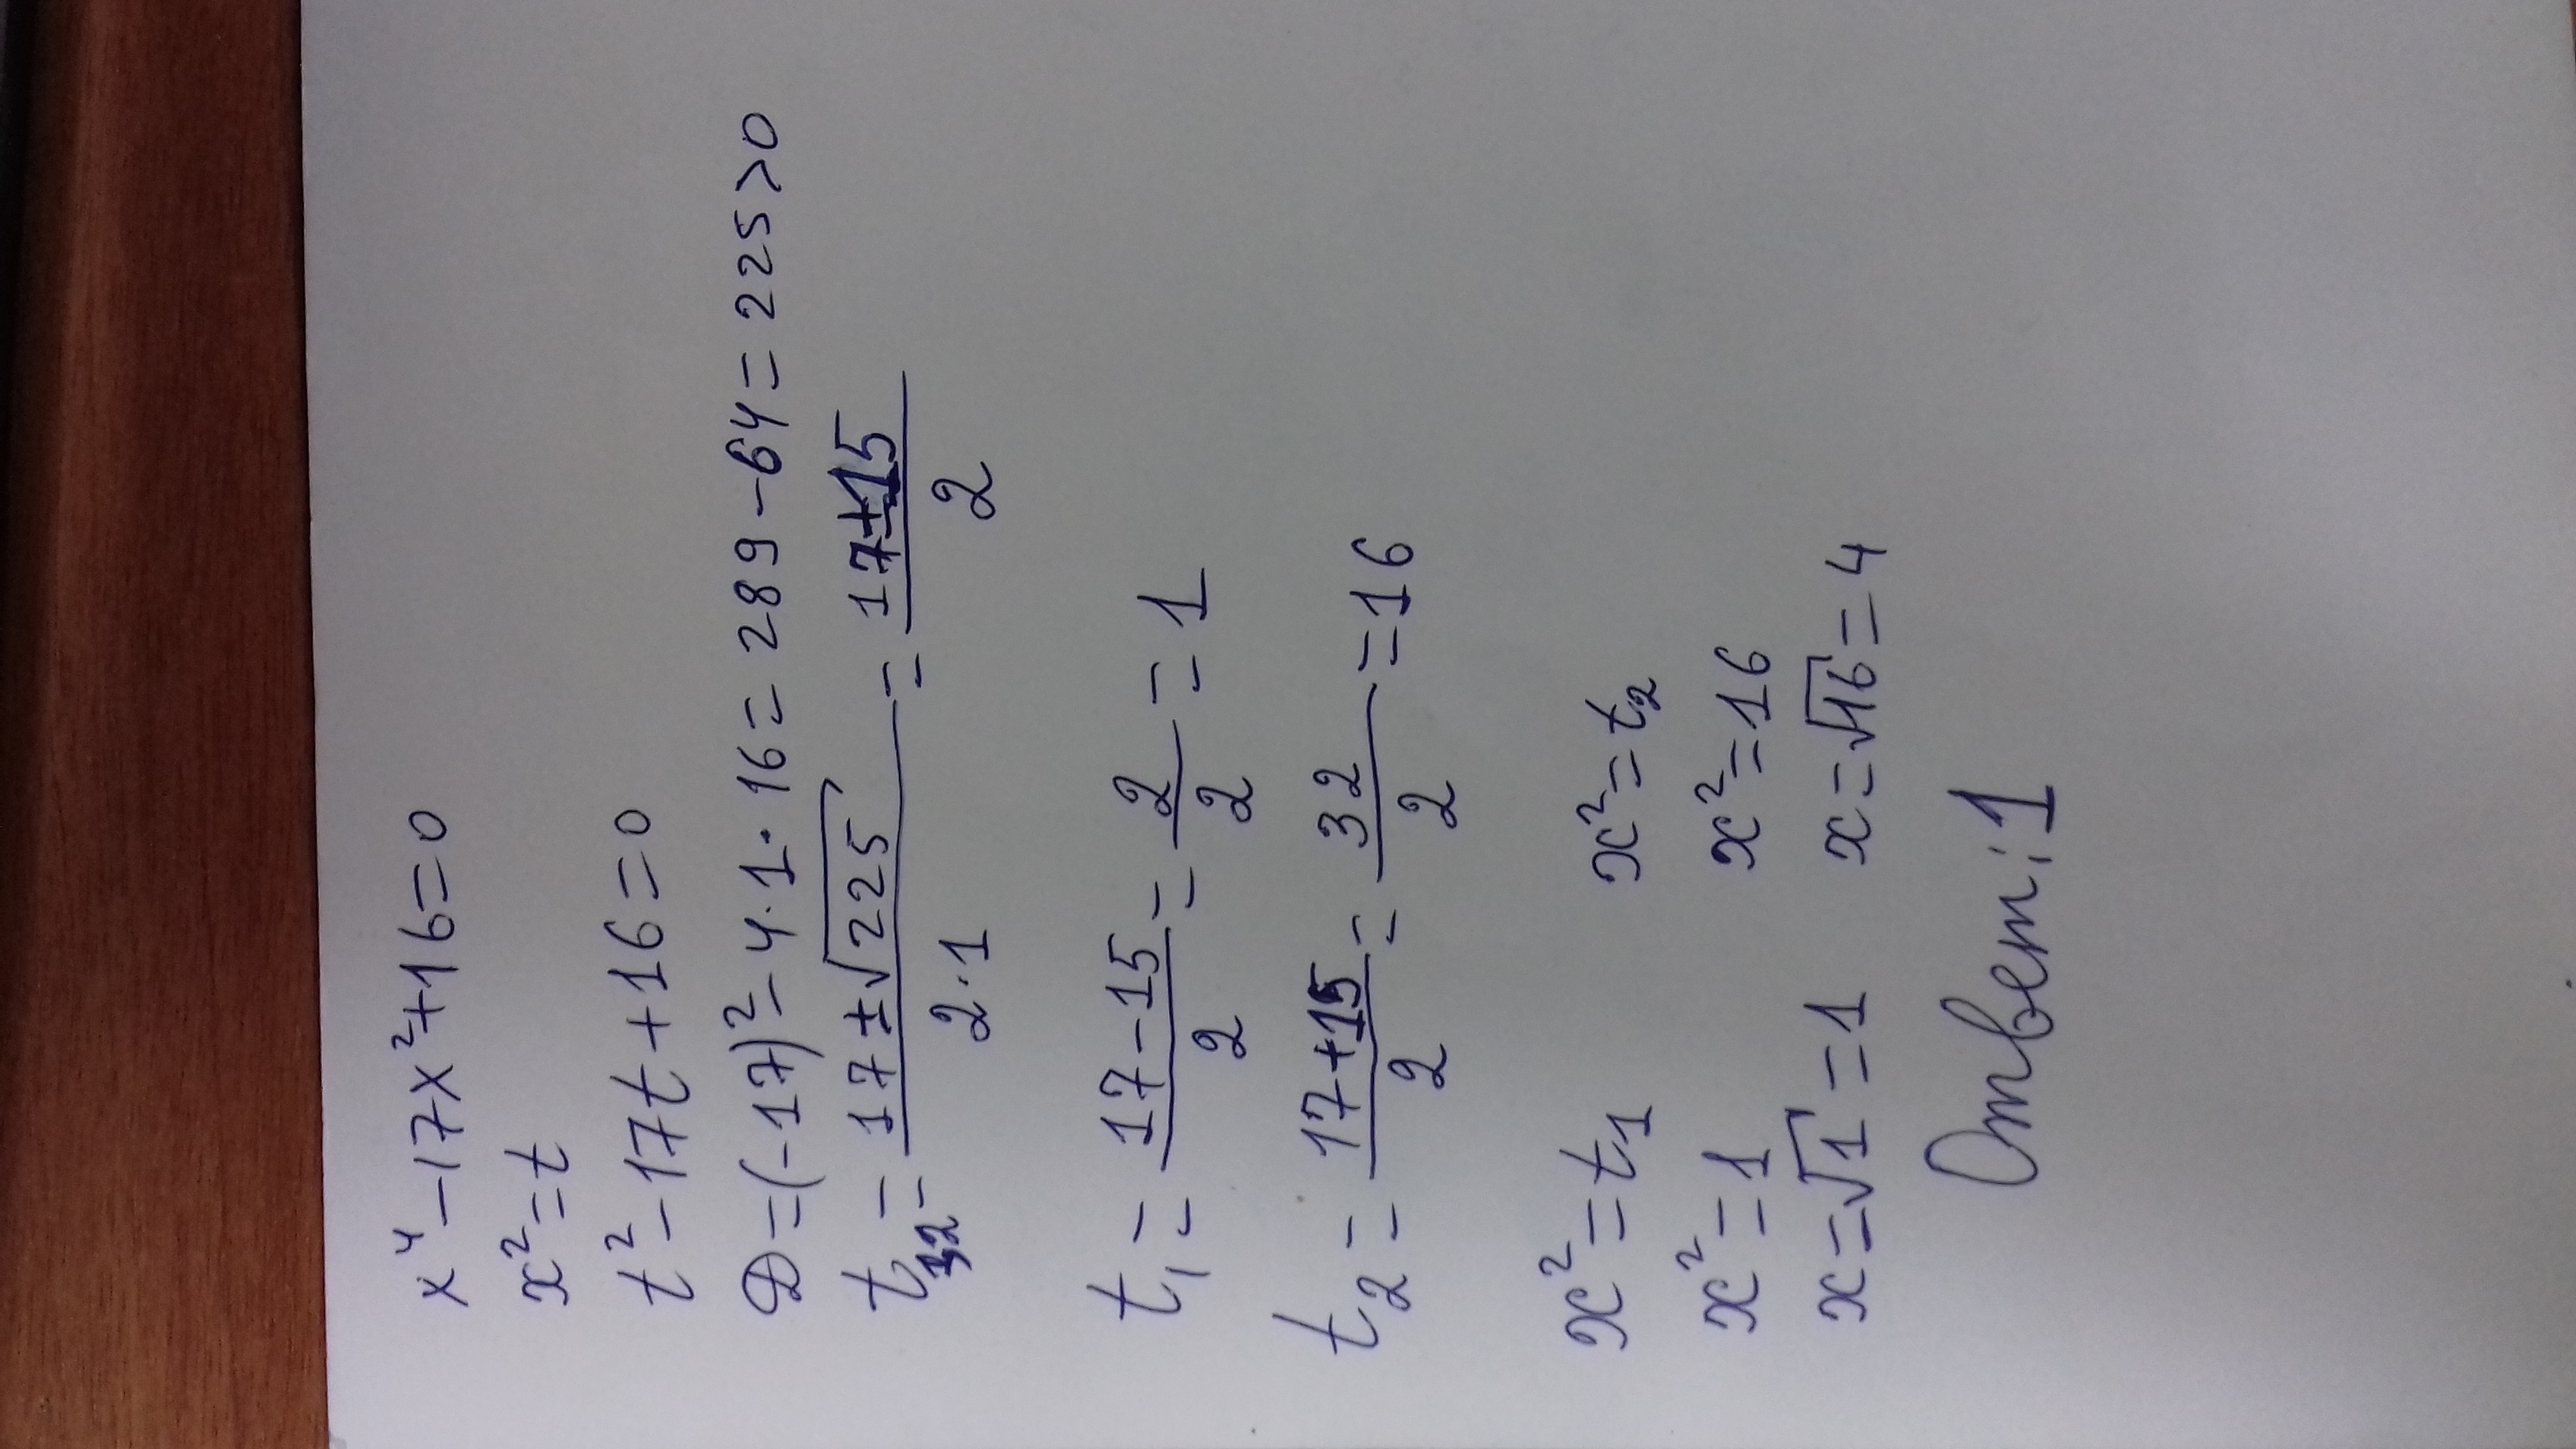 x⁴-17x²+16=0
x²=t
t²-17t+16=0
D=(-17)²-4·1·16=289-64=225>0
t₁,₂=(17±√225)/(2·1)=(17±15)/2
t₁=(17-15)/2=2/2=1
t₂=(17+15)/2=32/2=16
x²=t₁ x²=t₂
x²=1 x²=16
x=√1=1 x=√16=4
Ответ: 1